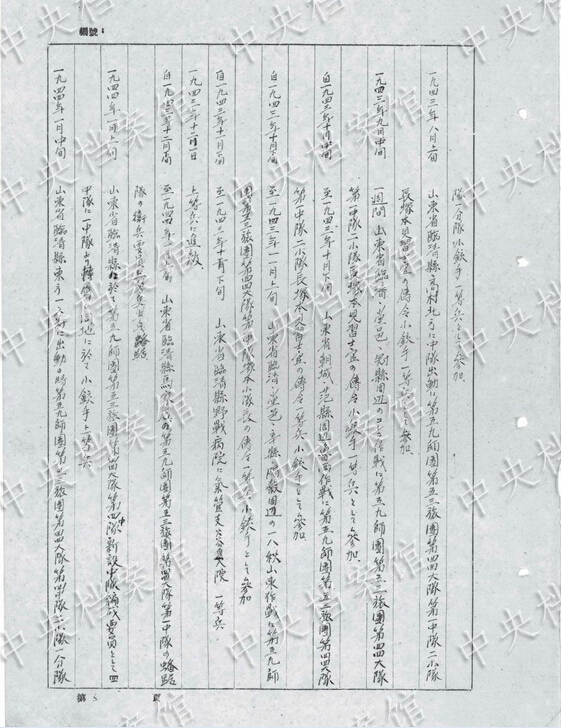 編號：
隊一分隊小銃手一等兵として参加.
一九四三年八月上旬 山東省臨清縣高村北方に中隊出動に第五九師團第五三旅團第四四大隊第一中隊二小隊
長塚本見習士官の傳令小銃手一等兵として参加
一九四三年九月中旬 一週間山東省臨清、堂邑、縣周辺のコレラ作戦に第五九師團第五三旅團第四四大隊
第一中隊二小隊長塚本見習士官の傳令小銃手一等兵として参加.
自一九四三年十月中旬 至一九四三年十月下旬 山東省朝城、范縣周辺作戦に第五九師團第五三旅團第四四大隊
第一中隊二小隊長塚本見習士官の傳令一等兵小銃手として参加
自一九四三年十月下旬 至一九四三年十一月上旬 山東省臨清、堂邑、莘縣周辺の一八秋山東作戦に第五九師
團第五三旅團第四四大隊第一中隊塚本小隊長の傳令一等兵小銃手として参加
自一九四三年十一月下旬 至一九四三年十一月下旬 山東省臨清縣野戦病院に氣管支炎入院 一等兵.
一九四三年十二月一日 上等兵に進級.
自一九四三年十二月 至一九四三年十二月 山東省臨清縣 第五九師團第五三旅團第四四大隊第一中隊の
隊の衛兵要員上等兵
一九四四年一月上旬 山東省臨清縣に於て第五九師團第五三旅團第四四大隊第四中隊新設中隊編成要員として四
中隊に一中隊より 於て小銃手上等兵
一九四四年一月中旬 山東省臨清縣東方 に出動の時第五九師團第五三旅團第四四大隊第四中隊二小隊一分隊
第5頁
中央档案馆